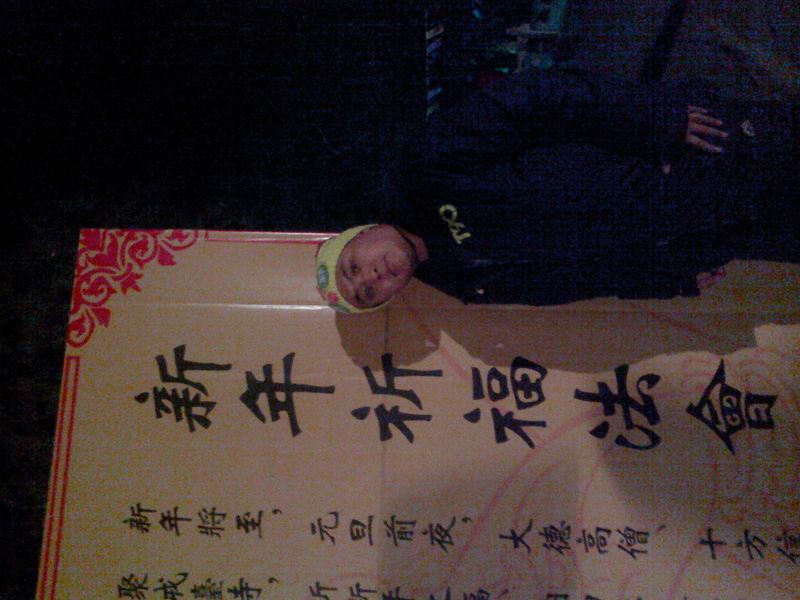 新年祈福法會
新年將至，元旦前夜，大德高僧、十方信
聚戒臺寺，